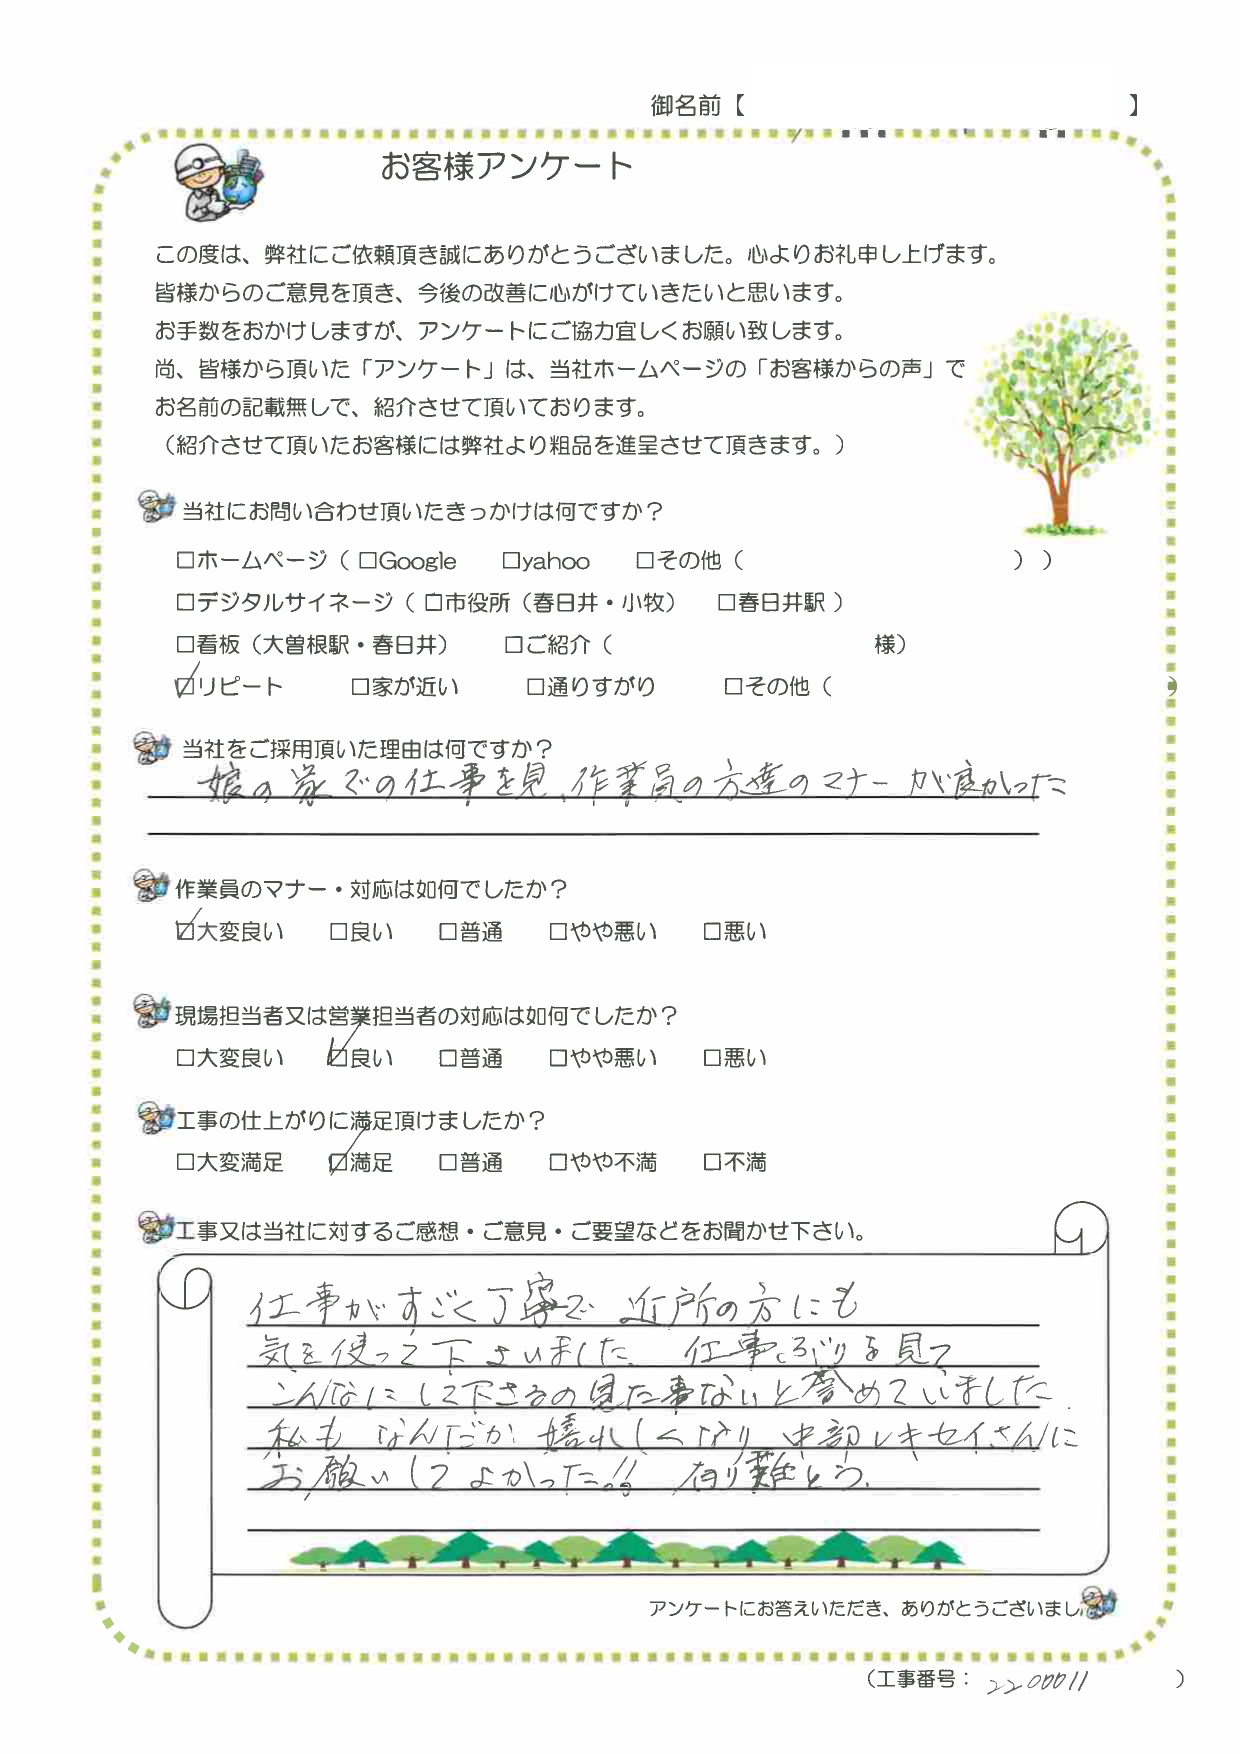 御名前【 】
お客様アンケート
この度は、弊社にご依頼頂き誠にありがとうございました。心よりお礼申し上げます。
皆様からのご意見を頂き、今後の改善に心がけていきたいと思います。
お手数をおかけしますが、アンケートにご協力宜しくお願い致します。
尚、皆様から頂いた「アンケート」は、当社ホームページの「お客様からの声」で
お名前の記載無しで、紹介させて頂いております。
（紹介させて頂いたお客様には弊社より粗品を進呈させて頂きます。）
当社にお問い合わせ頂いたきっかけは何ですか？
□ホームページ（ □Google □yahoo □その他（ ） ）
□デジタルサイネージ（ □市役所（春日井・小牧） □春日井駅 ）
□看板（大曽根駅・春日井） □ご紹介（ 様）
☑リピート □家が近い □通りすがり □その他（ ）
当社をご採用頂いた理由は何ですか？
娘の家での仕事を見、作業員の方達のマナーが良かった
作業員のマナー・対応は如何でしたか？
☑大変良い □良い □普通 □やや悪い □悪い
現場担当者又は営業担当者の対応は如何でしたか？
□大変良い ☑良い □普通 □やや悪い □悪い
工事の仕上がりに満足頂けましたか？
□大変満足 ☑満足 □普通 □やや不満 □不満
工事又は当社に対するご感想・ご意見・ご要望などをお聞かせ下さい。
仕事がすごく丁寧で 近所の方にも
気を使って下さいました 仕事ぶりを見て
こんなにして下さるの見た事ないと誉めていました
私も なんだか 嬉れしくなり 中部レキセイさんに
お願いしてよかった!! 有り難とう.
アンケートにお答えいただき、ありがとうございまし
（工事番号： 2200011 ）